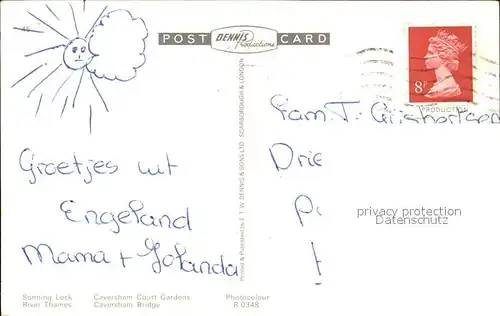 POST CARD
DENNIS
Productions
8P
Fam. T.
Drie
Groetjes uit
Engeland
Mama + Jolanda
privacy protection
veikkos.com
Printed & Published by E.T.W. DENNIS & SONS LTD. SCARBOROUGH & LONDON
Sonning Lock
River Thames
Caversham Court Gardens
Caversham Bridge
Photocolour
R.0348